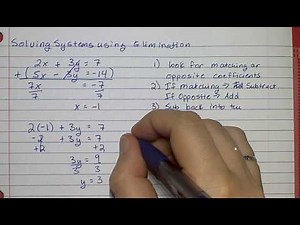 Solving Systems using Elimination
2x + 3y = 7
+(5x - 3y = -14)
7x = -7
7 7
x = -1
2(-1) + 3y = 7
-2 + 3y = 7
+2 +2
3y = 9
3 3
y = 3
1) look for matching or
opposite coefficients
2) If matching → Subtract
If Opposite → Add
3) Sub back into